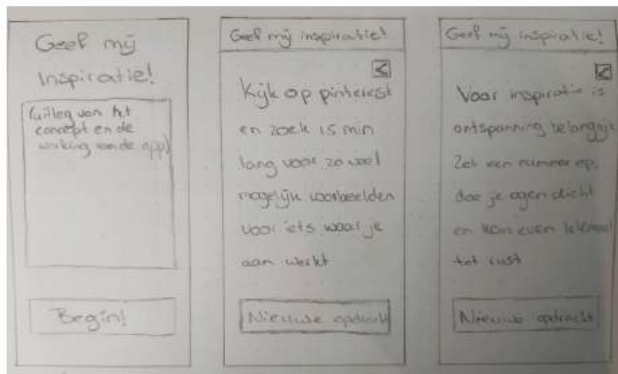 Geef mij
Inspiratie!
(uitleg van het
concept en de
werking van de app)
Begin!
Geef mij inspiratie!
Kijk op pinterest
en zoek 15 min
lang voor zo veel
mogelijk voorbeelden
voor iets waar je
aan werkt
Nieuwe opdracht
Geef mij inspiratie!
Voor inspiratie is
ontspanning belangrijk
Zet een nummer op,
doe je ogen dicht
en kom even helemaal
tot rust
Nieuwe opdracht